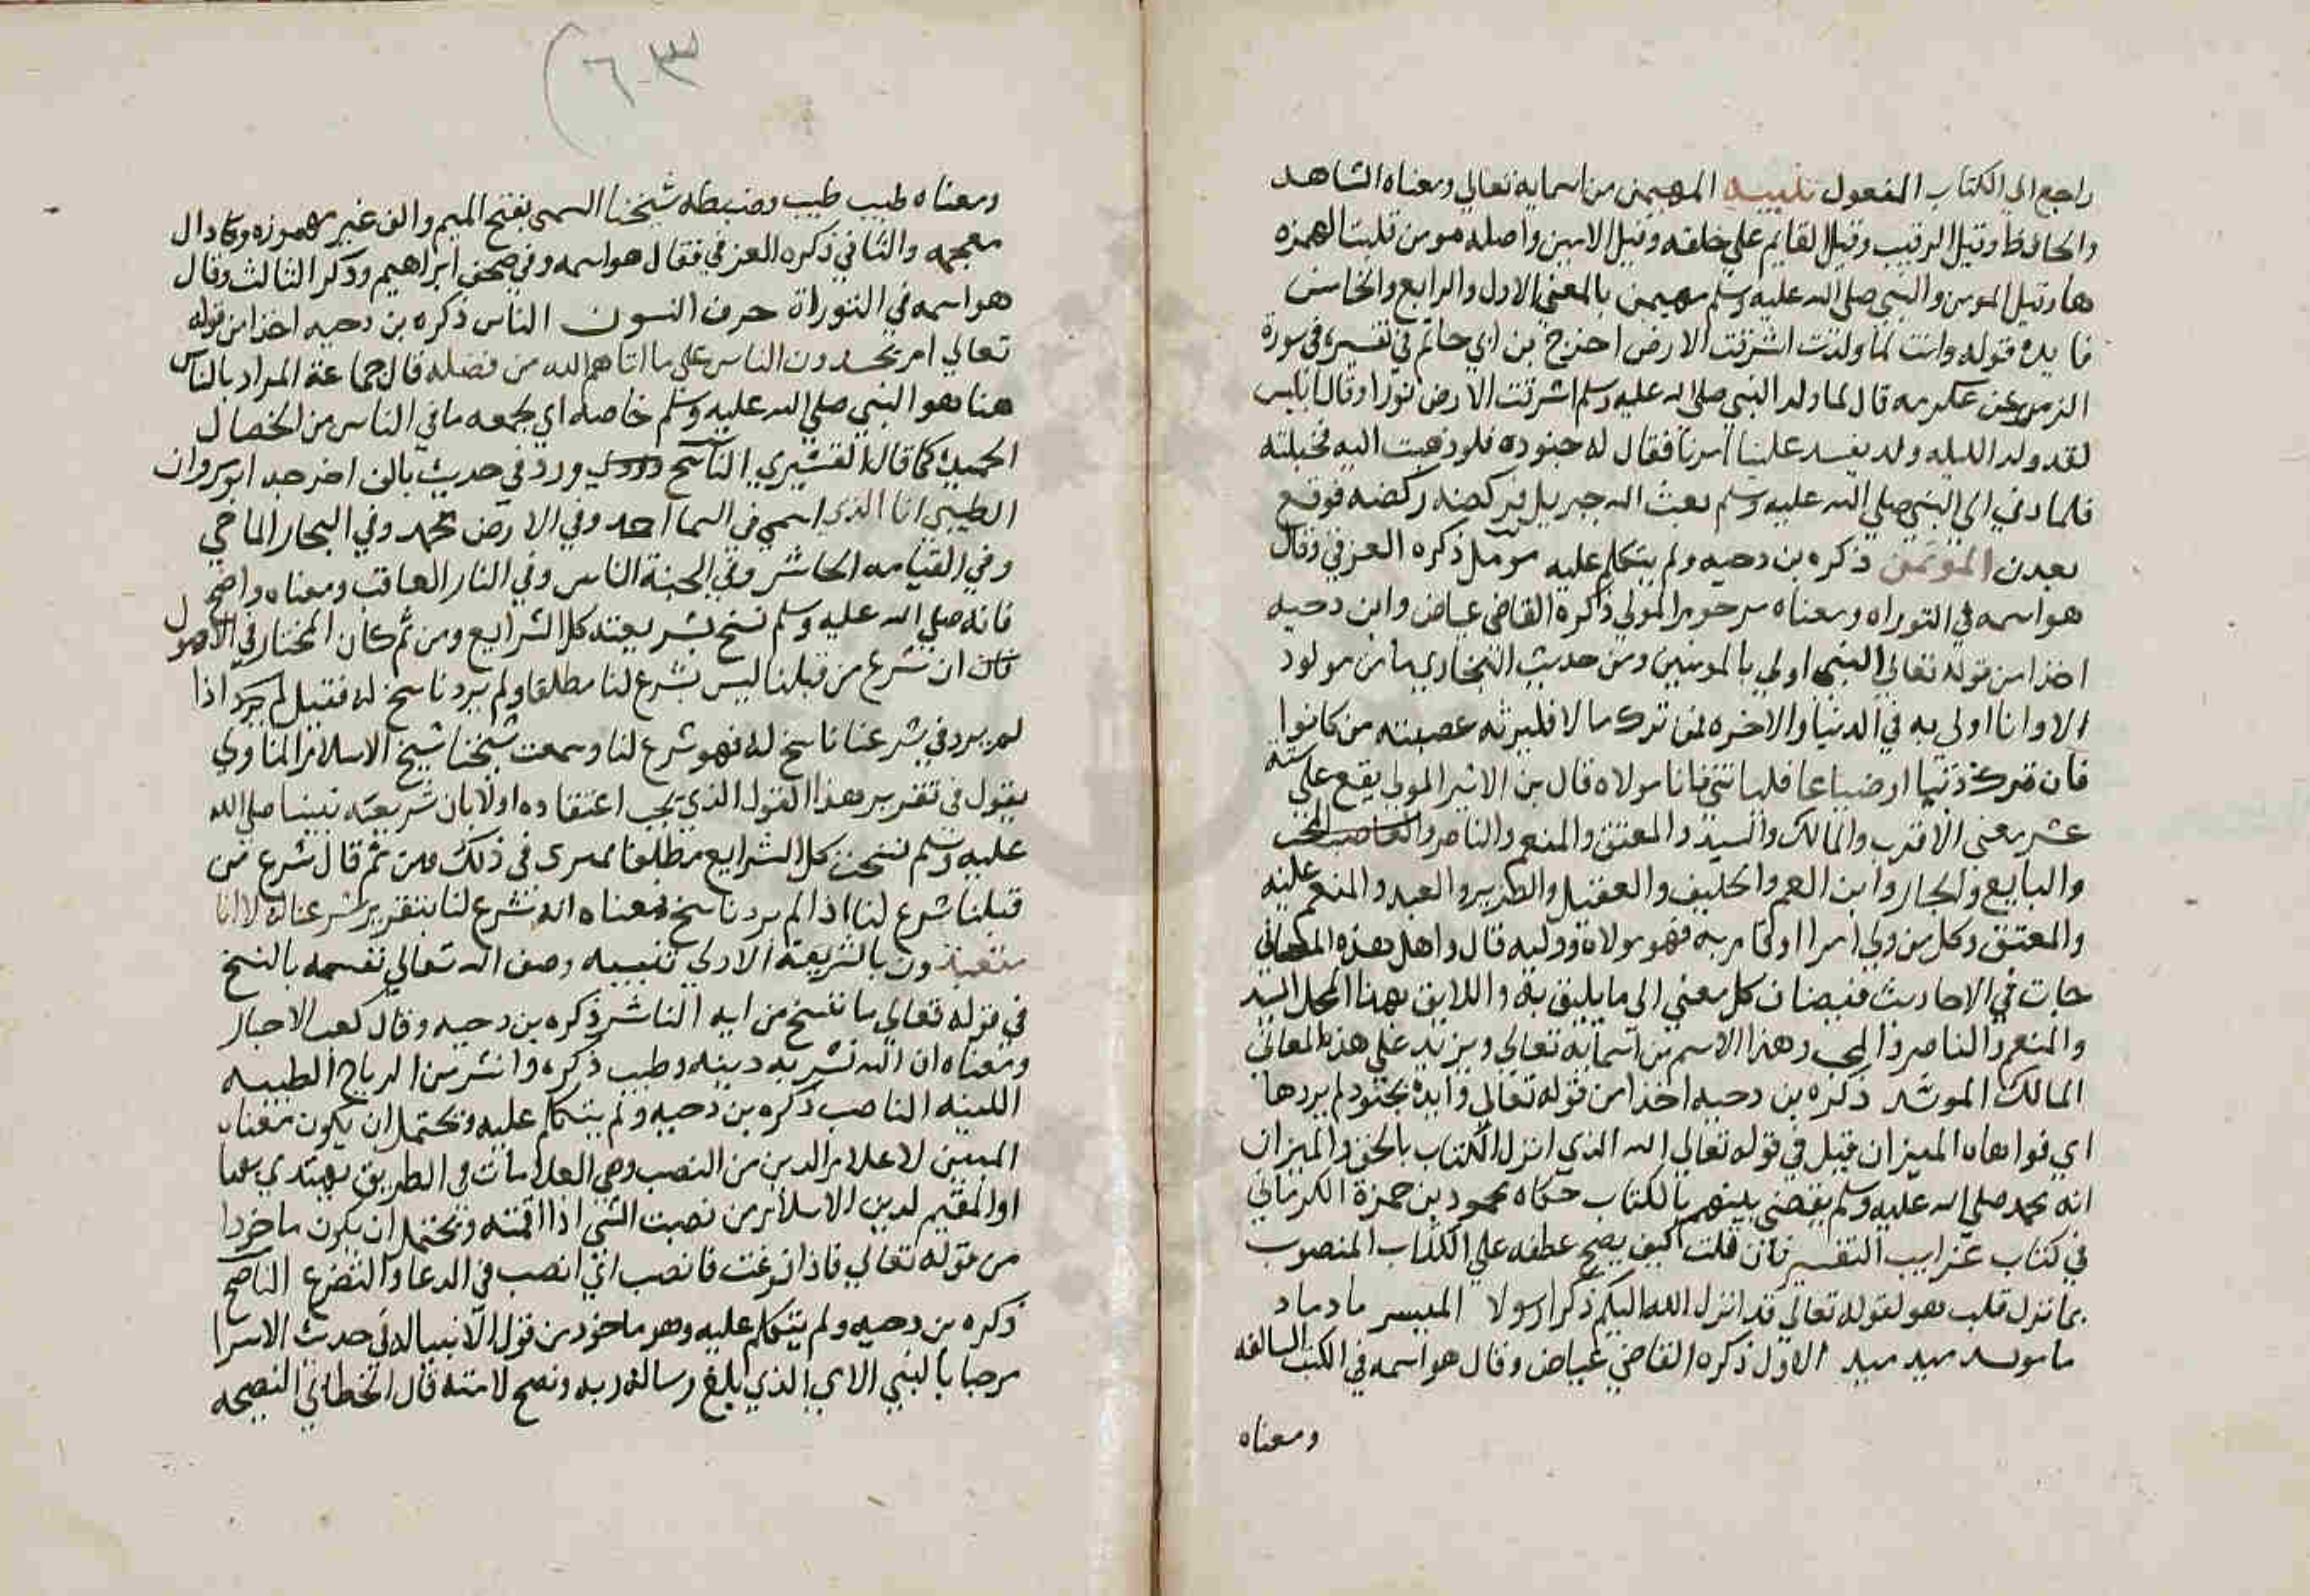 راجع الي الكتاب المفعول تنبيه المهيمن من اسمايه تعالي ومعناه الشاهد
والحافظ وقيل الرقيب وقيل القايم علي خلقه وقيل الامين واصله مومن قلبت الهمزه
ها وقيل المومن والنبي صلي الله عليه وسلم مهيمن بالمعني الاول والرابع والخامس
فايده قوله وانت لما ولدت اشرقت الارض اخرج بن ابي حاتم في تفسيره في سورة
الزمر عن عكرمه قال لما ولد النبي صلي الله عليه وسلم اشرقت الارض نورا وقال ابليس
لقد ولد الليله ولد يفسد علينا امرنا فقال له جنوده فلو ذهبت اليه فخبلته
فلما دني الي النبي صلي الله عليه وسلم بعث الله جبريل فركضه ركضه فوقع
بعدن الموتمن ذكره بن دحيه ولم يتكلم عليه موّمل ذكره العزفي وقال
هو اسمه في التوراه ومعناه مرحوم المولي ذكرة القاضي عياض وابن دحيه
اخذا من قوله تعالي النبي اولي بالمومنين ومن حديث البخاري ما من مولود
الا وانا اولي به في الدنيا والاخره فمن ترك مالا فليرثه عصبته من كانوا
فان ترك دينا او ضياعا فلياتني فانا مولاه قال بن الاثير المولي يقع علي ستة
عشر معني الاقرب والمالك والسيد والمعتق والمنعم والناصر والمحب
والبايع والجار وابن العم والحليف والعقيل والصهر والعبد والمنعم عليه
والمعتق وكل من ولي امرا او قام به فهو مولاه ووليه قال واهل هذه المعاني
جات في الاحاديث فيضاف كل معني الي ما يليق به واللايق بهذا المحل السيد
والمنعم والناصر والمحب وهذا الاسم من اسمايه تعالي ويزيد علي هذه المعاني
المالك الموشد ذكره بن دحيه اخذا من قوله تعالي وايده بجنود لم يروها
اي قواها الميزان قيل في قوله تعالي الله الذي انزل الكتاب بالحق والميزان
انه محمد صلي الله عليه وسلم يقضي بينهم بالكتاب حكاه محمود بن حمزة الكرماني
في كتاب غرايب التفسير فان قلت كيف يصح عطفه علي الكتاب المنصوب
بما نزل قلب هو لقوله تعالي قد انزل الله اليكم ذكرا رسولا الميسر ماد ماد
ميد ميد الاول ذكره القاضي عياض وقال هو اسمه في الكتب السالفه
ومعناه
٦٠٣
ومعناه طيب طيب وضبطه شيخنا السمي بفتح الميم والف غير مهموزه ودال
معجمه والثاني ذكره العزفي فقال هو اسمه وفي صحف ابراهيم وذكر الثالث وقال
هو اسمه في التوراة حرف النسون الناس ذكره بن دحيه اخذا من قوله
تعالي ام يحسدون الناس علي ما اتاهم الله من فضله قال جماعة المراد بالناس
هنا هو النبي صلي الله عليه وسلم خاصه اي لجمعه ما في الناس من الخصال
الحميدة كما قاله القشيري الناسخ ورد في حديث بالف اخرجه ابو مروان
الطيبي انا الذي اسمي في السما احمد وفي الارض محمد وفي البحار الماحي
وفي القيامه الحاشر وفي الجنة الناس وفي النار العاقب ومعناه واضح
فانه صلي الله عليه وسلم نسخ بشريعته كل الشرايع ومن ثم كان المختار في الاصول
ان شرع من قبلنا ليس بشرع لنا مطلقا ولم يرد ناسخ له فقيل لم يرد اذا
لم يرد في شرعنا ناسخ له فهو شرع لنا وسمعت شيخنا شيخ الاسلام المناوي
يقول في تقرير هذا القول الذي يجب اعتقاده اولا بان شريعة نبينا صلي الله
عليه وسلم نسخت كل الشرايع مطلقا في ذلك فمن ثم قال شرع من
قبلنا شرع لنا اذا لم يرد ناسخ فمعناه انه شرع لنا بتقرير شرعنا له لا انا
متعبدون بالشريعة الاولي تنبيه وصف الله تعالي نفسه بالنسخ
في قوله تعالي ما ننسخ من ايه الناشر ذكره بن دحيه وقال كعب الاحبار
ومعناه ان الله نشر به دينه وطيب ذكره وانشر من الرياح الطيبه
اللينه الناصب ذكره بن دحيه ولم يتكلم عليه ويحتمل ان يكون معناه
المبين لاعلام الدين من النصب وهي العلامات في الطريق يهتدي بها
او المقيم لدين الاسلام من نصبت الشي اذا اقمته ويحتمل ان يكون ماخوذا
من قوله تعالي فاذا فرغت فانصب اي انصب في الدعا والتضرع الناصح
ذكره بن دحيه ولم يتكلم عليه وهو ماخوذ من قول الانبيا له في حديث الاسرا
مرحبا بالنبي الامي الذي ابلغ رسالة ربه ونصح لامته قال الخطابي النصيحه